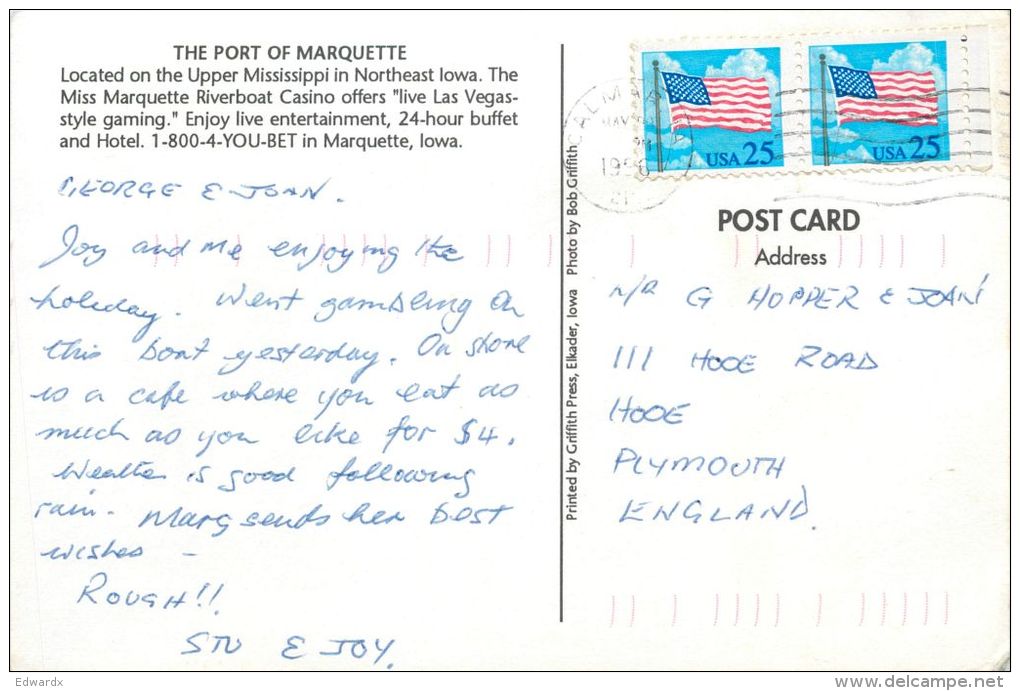 THE PORT OF MARQUETTE
Located on the Upper Mississippi in Northeast Iowa. The
Miss Marquette Riverboat Casino offers "live Las Vegas-
style gaming." Enjoy live entertainment, 24-hour buffet
and Hotel. 1-800-4-YOU-BET in Marquette, Iowa.
GEORGE & JOAN.
Joy and me enjoying the
holiday. Went gambling on
this boat yesterday. On shore
is a cafe where you eat as
much as you like for $4.
Weather is good following
rain. Marg sends her best
wishes –
ROUGH!!
STU & JOY.
Printed by Griffith Press, Elkader, Iowa Photo by Bob Griffith
CALMAR
MAY
PM
USA 25
USA 25
POST CARD
Address
G HOPPER & JOAN
111 HOOE ROAD
HOOE
PLYMOUTH
ENGLAND.
Edwardx
delcampe.net